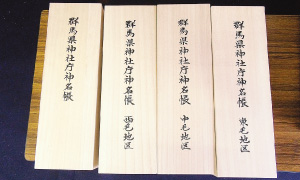 群馬県神社庁神名帳 東毛地区
群馬県神社庁神名帳 中毛地区
群馬県神社庁神名帳 西毛地区
群馬県神社庁神名帳